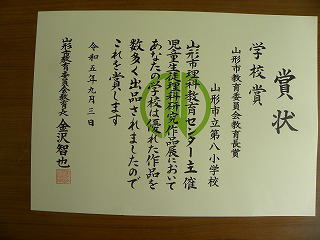 賞状
学校賞
山形市教育委員会教育長賞
山形市立第八小学校
山形市理科教育センター主催
児童生徒理科研究作品展において
あなたの学校は優れた作品を
数多く出品されましたので
これを賞します
令和五年九月三日
山形市教育委員会教育長 金沢智也